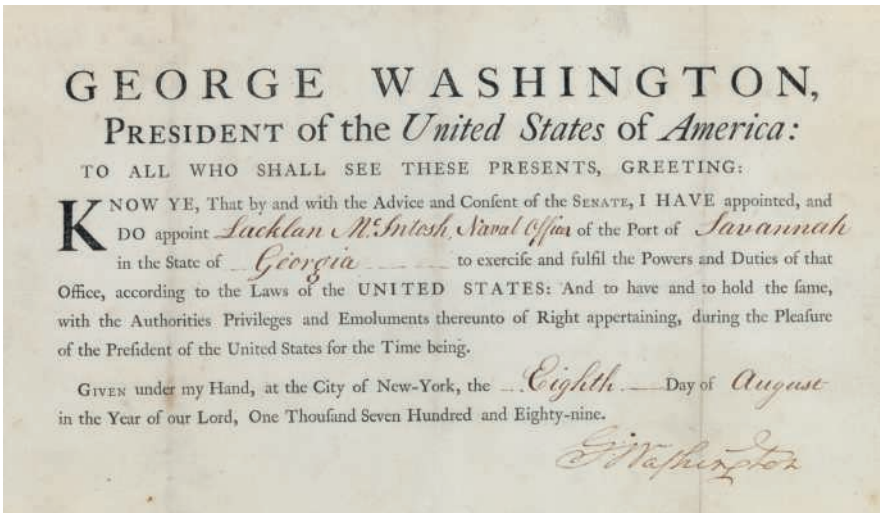 GEORGE WASHINGTON,
PRESIDENT of the United States of America:
TO ALL WHO SHALL SEE THESE PRESENTS, GREETING:
KNOW YE, That by and with the Advice and Conſent of the SENATE, I HAVE appointed, and
DO appoint Lacklan McIntosh, Naval Officer of the Port of Savannah
in the State of Georgia to exerciſe and fulfil the Powers and Duties of that
Office, according to the Laws of the UNITED STATES: And to have and to hold the ſame,
with the Authorities Privileges and Emoluments thereunto of Right appertaining, during the Pleaſure
of the Preſident of the United States for the Time being.
GIVEN under my Hand, at the City of New-York, the Eighth Day of August
in the Year of our Lord, One Thouſand Seven Hundred and Eighty-nine.
G:Washington